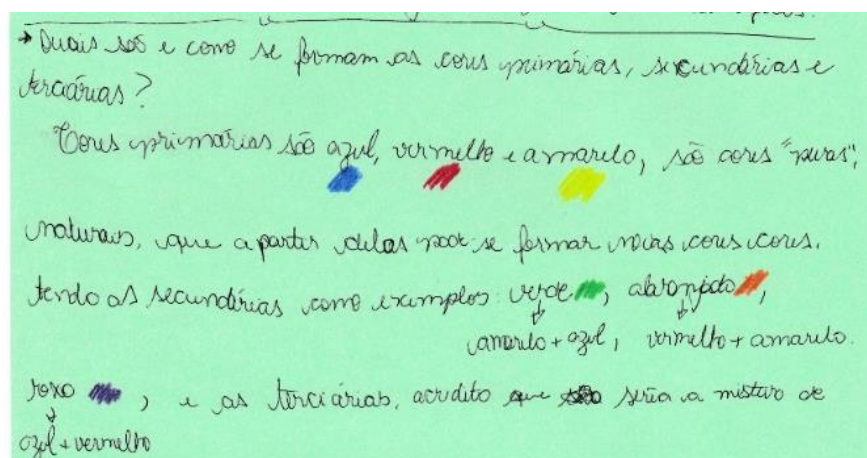 → Quais são e como se formam as cores primárias, secundárias e
terciárias?
Cores primárias são azul, vermelho e amarelo, são cores "puras",
naturais, que a partir delas pode-se formar novas cores cores.
tendo as secundárias como exemplos: verde, alaranjado,
amarelo + azul, vermelho + amarelo.
roxo, e as terciárias, acredito que seria a mistura de
azul + vermelho